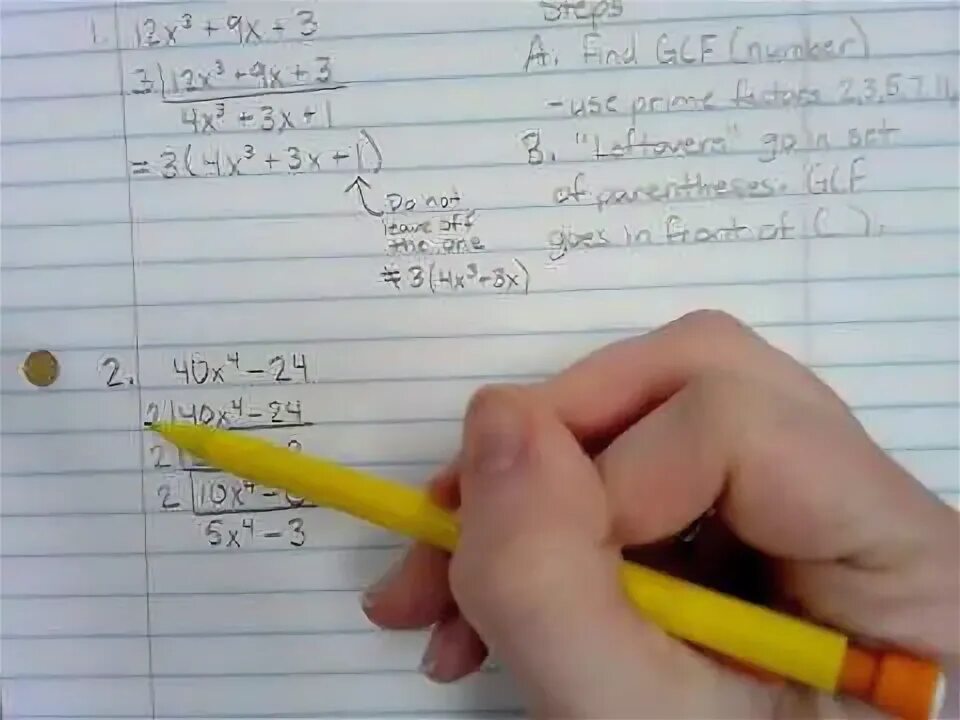 1. 12x³ + 9x + 3
3 12x³ + 9x + 3
4x³ + 3x + 1
= 3(4x³ + 3x + 1)
Do not
leave off
the one
≠ 3(4x³ + 3x)
Steps
A. Find GCF (number)
- use prime factors 2,3,5,7,11
B. "Leftovers" go in set
of parentheses. GCF
goes in front of ( ).
2. 40x⁴ - 24
2 40x⁴ - 24
2
2 10x⁴ -
5x⁴ - 3